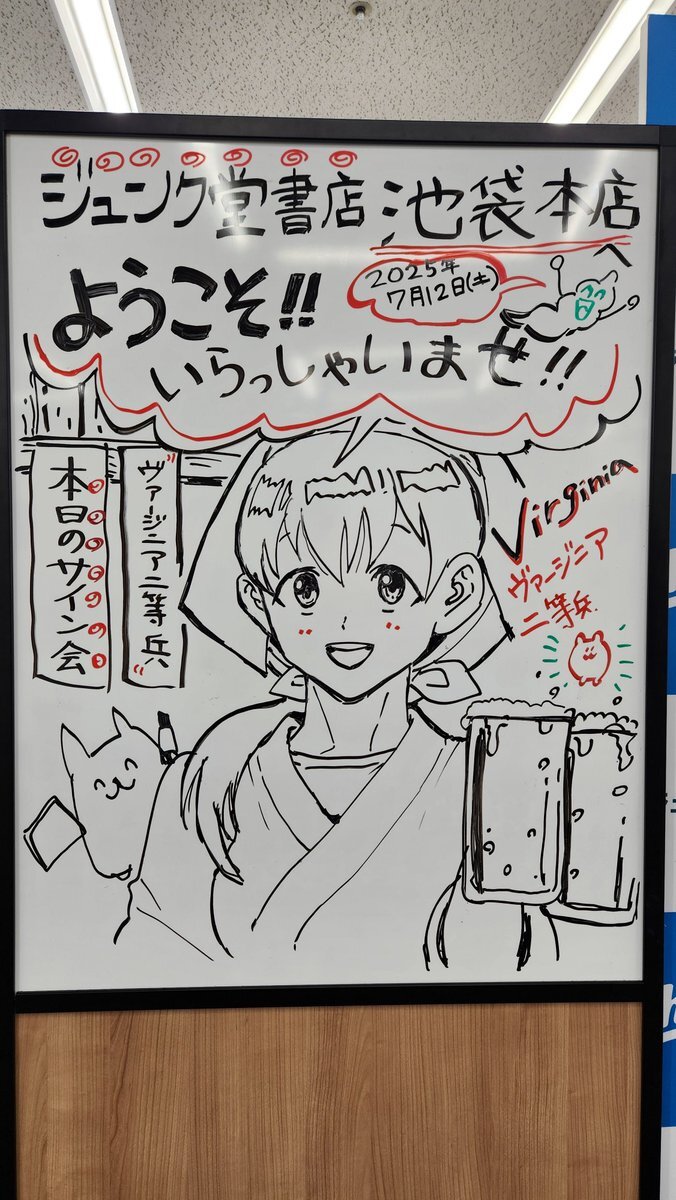 ジュンク堂書店 池袋本店へ
2025年
7月12日(土)
ようこそ!!
いらっしゃいませ!!
本日のサイン会
"ヴァージニア二等兵"
Virginia
ヴァージニア
二等兵